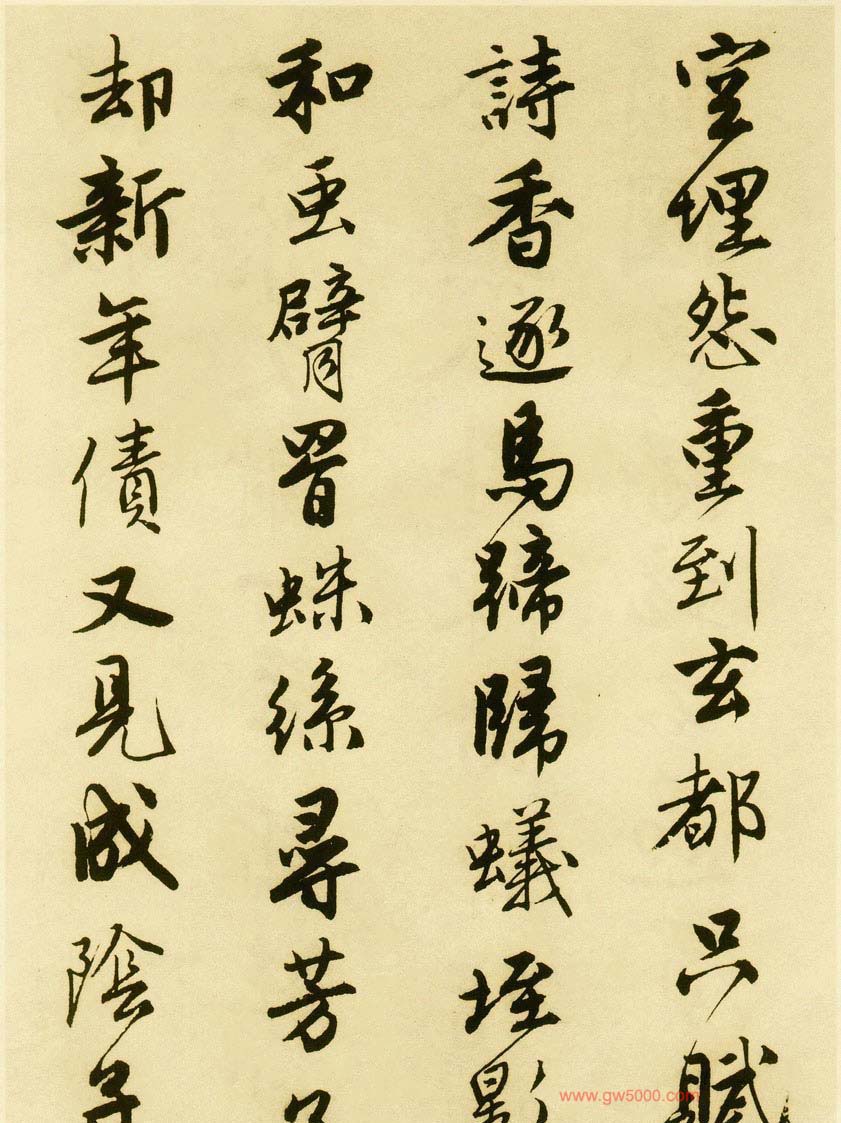 空埋怨重到玄都只賦
詩香逐馬蹄歸蟻垤影
和虫臂罥蛛絲尋芳
却新年債又見成陰子
www.gw5000.com